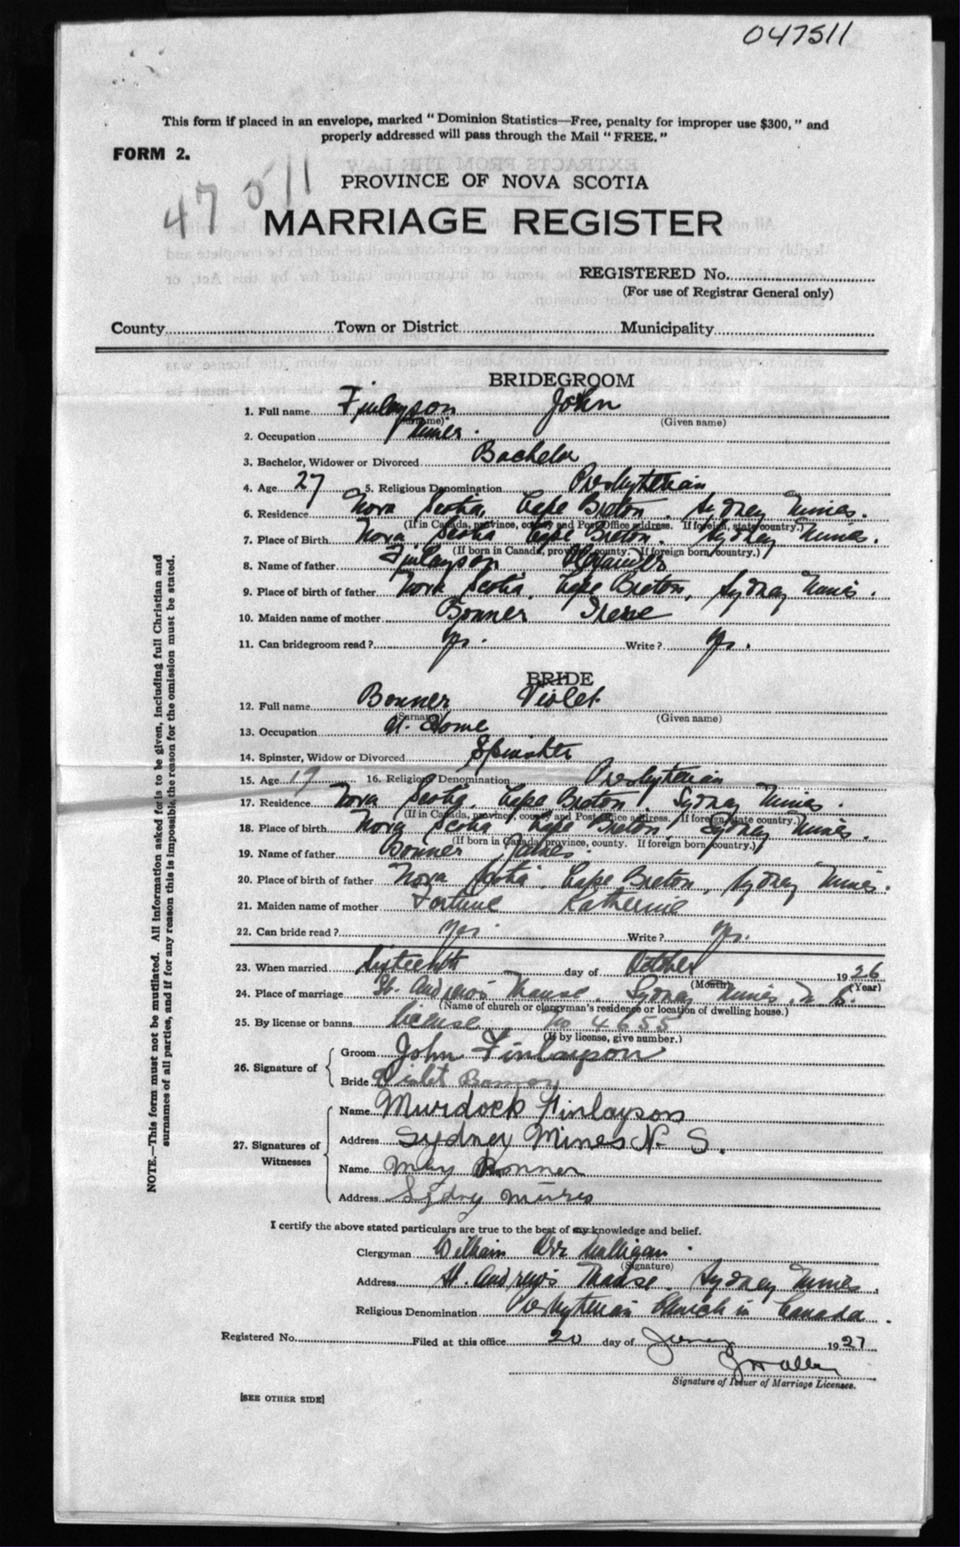 047511
This form if placed in an envelope, marked "Dominion Statistics—Free, penalty for improper use $300," and
properly addressed will pass through the Mail "FREE."
FORM 2.
47511
PROVINCE OF NOVA SCOTIA
MARRIAGE REGISTER
REGISTERED No.
(For use of Registrar General only)
County Town or District Municipality
BRIDEGROOM
1. Full name Finlayson John
(Surname) (Given name)
2. Occupation Miner.
3. Bachelor, Widower or Divorced Bachelor
4. Age 27 5. Religious Denomination Presbyterian
6. Residence Nova Scotia, Cape Breton, Sydney Mines.
(If in Canada, province, county and Post Office address. If foreign, state country.)
7. Place of Birth Nova Scotia Cape Breton. Sydney Mines.
(If born in Canada, province, county. If foreign born, country.)
8. Name of father Finlayson Alexander
9. Place of birth of father Nova Scotia, Cape Breton, Sydney Mines.
10. Maiden name of mother Bonner Irene
11. Can bridegroom read? Yes. Write? Yes.
BRIDE
12. Full name Bonner Violet
(Surname) (Given name)
13. Occupation At Home
14. Spinster, Widow or Divorced Spinster
15. Age 19 16. Religious Denomination Presbyterian
17. Residence Nova Scotia, Cape Breton, Sydney Mines.
(If in Canada, province, county and Post Office address. If foreign, state country.)
18. Place of birth Nova Scotia Cape Breton Sydney Mines.
(If born in Canada, province, county. If foreign born, country.)
19. Name of father Bonner James.
20. Place of birth of father Nova Scotia, Cape Breton, Sydney Mines.
21. Maiden name of mother Fortune Katherine
22. Can bride read? Yes. Write? Yes.
23. When married Sixteenth day of October 1926
(Month) (Year)
24. Place of marriage St. Andrew's Manse, Sydney Mines, N.S.
(Name of church or clergyman's residence or location of dwelling house.)
25. By license or banns license No 4655
(If by license, give number.)
26. Signature of Groom John Finlayson
Bride Violet Bonner
27. Signatures of Witnesses Name Murdock Finlayson
Address Sydney Mines N. S.
Name May Bonner
Address Sydny Mines
I certify the above stated particulars are true to the best of my knowledge and belief.
Clergyman William Orr Mulligan.
(Signature)
Address St. Andrew's Manse, Sydney Mines.
Religious Denomination Presbyterian Church in Canada.
Registered No. Filed at this office 20 day of 1927
Signature of Issuer of Marriage Licenses.
[SEE OTHER SIDE]
NOTE.—This form must not be mutilated. All information asked for is to be given, including full Christian and
surnames of all parties, and if for any reason this is impossible the reason for the omission must be stated.